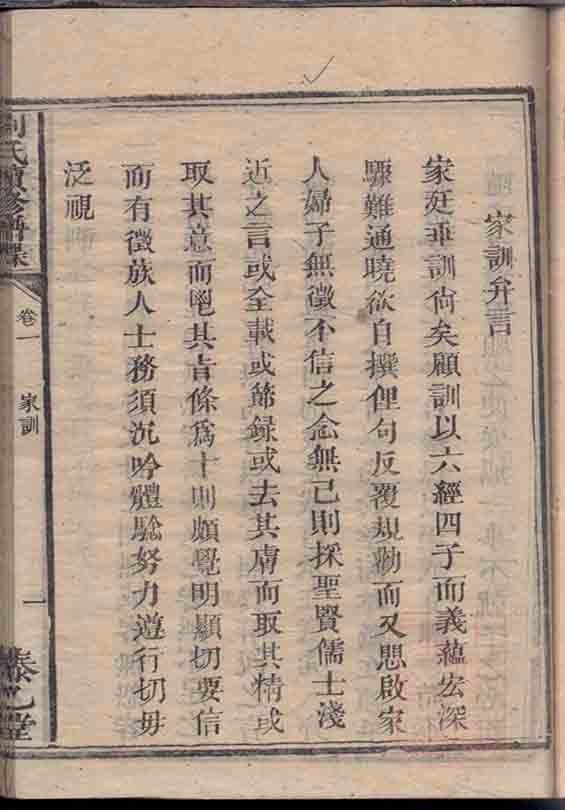 家訓弁言
家廷垂訓尙矣顧訓以六經四子而義蘊宏深
驟難通曉欲自撰俚句反覆規勸而又思啟家
人婦子無徵不信之念無已則採聖賢儒士淺
近之言或全載或節錄或去其膚而取其精或
取其意而鬯其旨條爲十則頗覺明顯切要信
而有徵族人士務須沉吟體騐努力遵行切毋
泛視
氏續修譜
卷一
家訓
一
堂